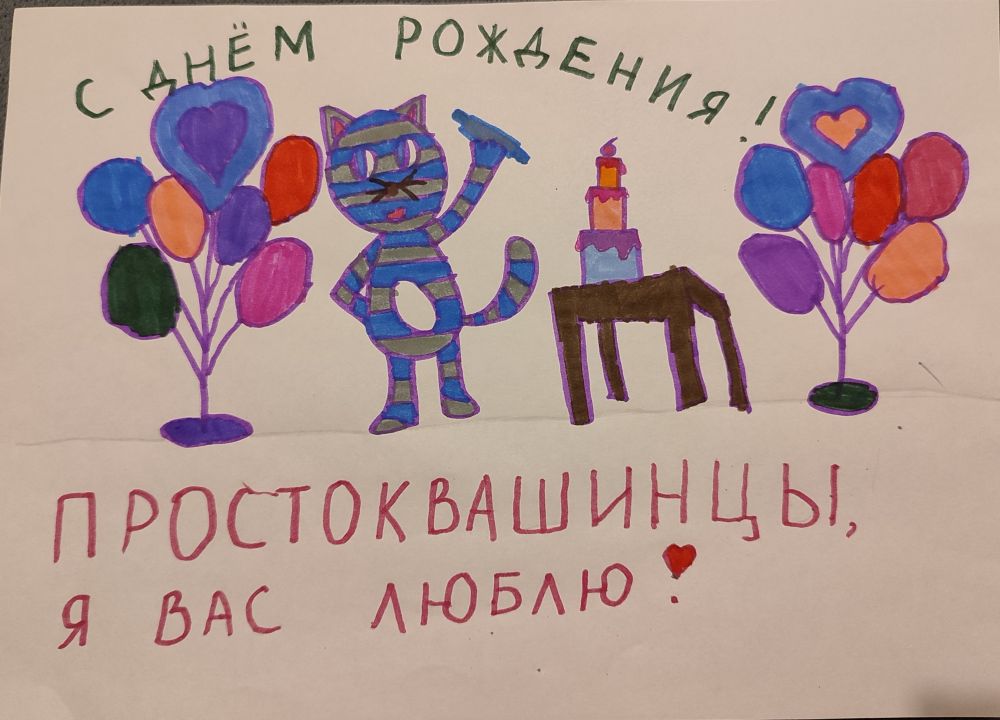 С ДНЁМ РОЖДЕНИЯ!
ПРОСТОКВАШИНЦЫ,
Я ВАС ЛЮБЛЮ!